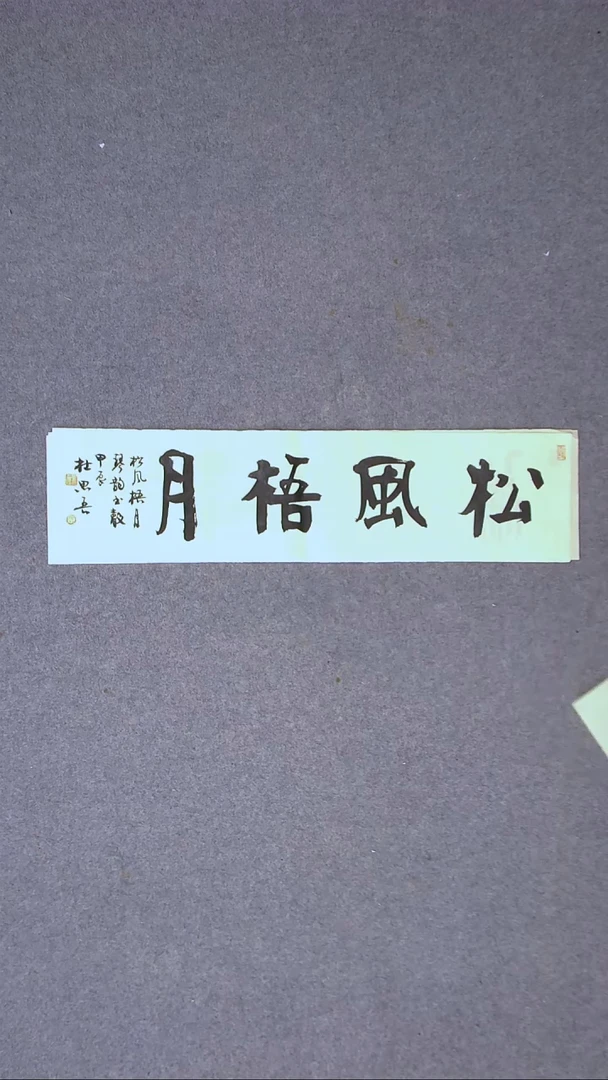 松風梧月
松风梧月
琴韵书声
甲辰
杜思长